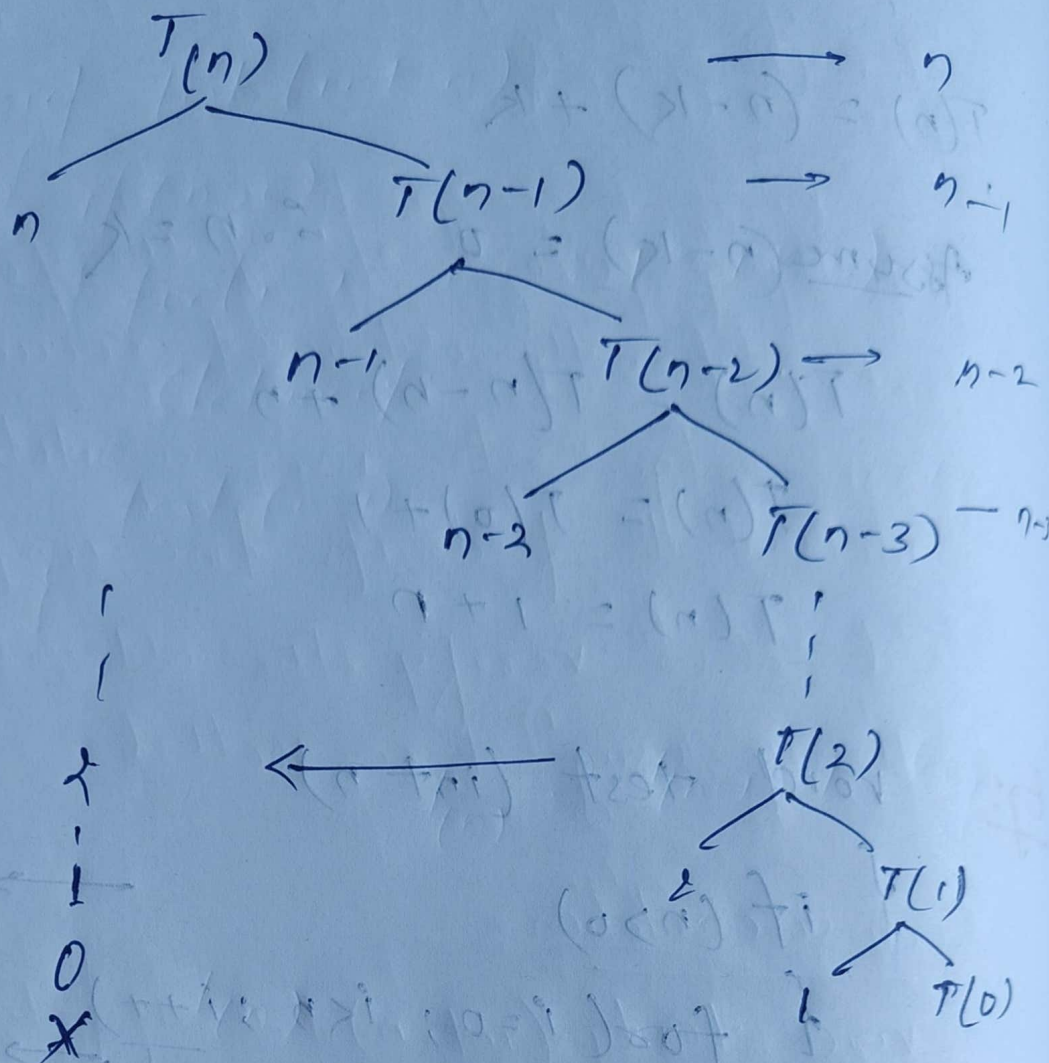 T(n) → n
n T(n-1) → n-1
n-1 T(n-2) → n-2
n-2 T(n-3) —
2 ← T(2)
2 T(1)
1
1 T(0)
0
X